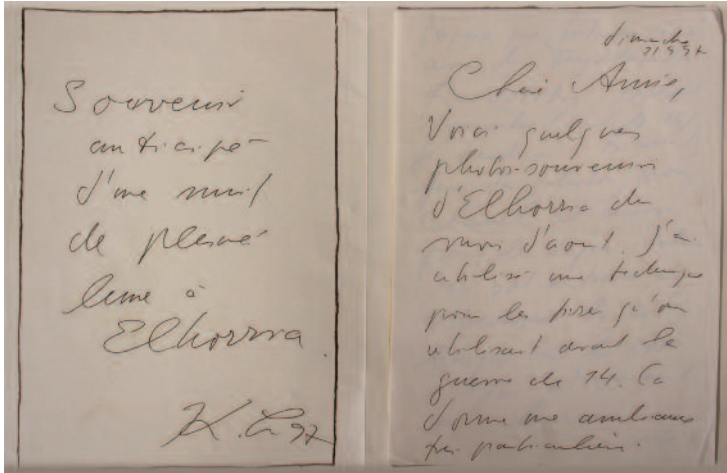 Souvenir
anticipé
d'une nuit
de pleine
lune à
Elhorria.
K. 97
dimanche
21 9 97
Cher Annie,
Voici quelques
photos-souvenirs
d'Elhorria du
mois d'août. J'ai
utilisé une technique
pour les tirer qu'on
utilisait avant la
guerre de 14. Ca
donne une ambiance
très particulière.